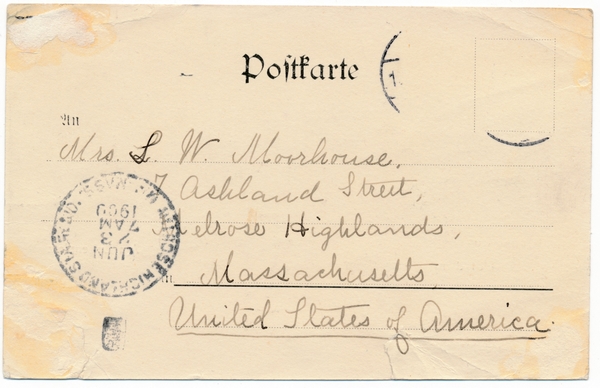 Postkarte
An
Mrs. L. W. Moorhouse,
7 Ashland Street,
Melrose Highlands,
Massachusetts,
United States of America.
JUN
23
7 AM
1900